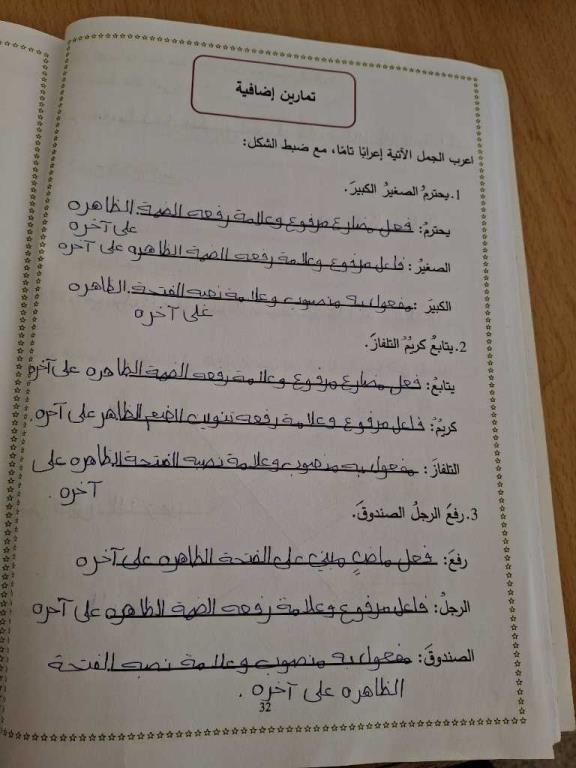 تمارين إضافية
اعرب الجمل الآتية إعرابًا تامًا، مع ضبط الشكل:
1.يحترمُ الصغيرُ الكبيرَ.
يحترمُ: فعل مضارع مرفوع وعلامة رفعه الضمة الظاهره
على آخره
الصغيرُ: فاعل مرفوع وعلامة رفعه الضمة الظاهره على آخره
الكبيرَ: مفعول به منصوب وعلامة نصبه الفتحة الظاهره
على آخره
2.يتابعُ كريمٌ التلفازَ.
يتابعُ: فعل مضارع مرفوع وعلامة رفعه الضمة الظاهره على آخره
كريمٌ: فاعل مرفوع وعلامة رفعه تنوين الضم الظاهر على آخره.
التلفازَ: مفعول به منصوب وعلامة نصبه الفتحة الظاهره على
آخره.
3.رفعَ الرجلُ الصندوقَ.
رفعَ: فعل ماضٍ مبني على الفتحة الظاهره على آخره
الرجلُ: فاعل مرفوع وعلامة رفعه الضمة الظاهره على آخره
الصندوقَ: مفعول به منصوب وعلامة نصبه الفتحة
الظاهره على آخره.
32